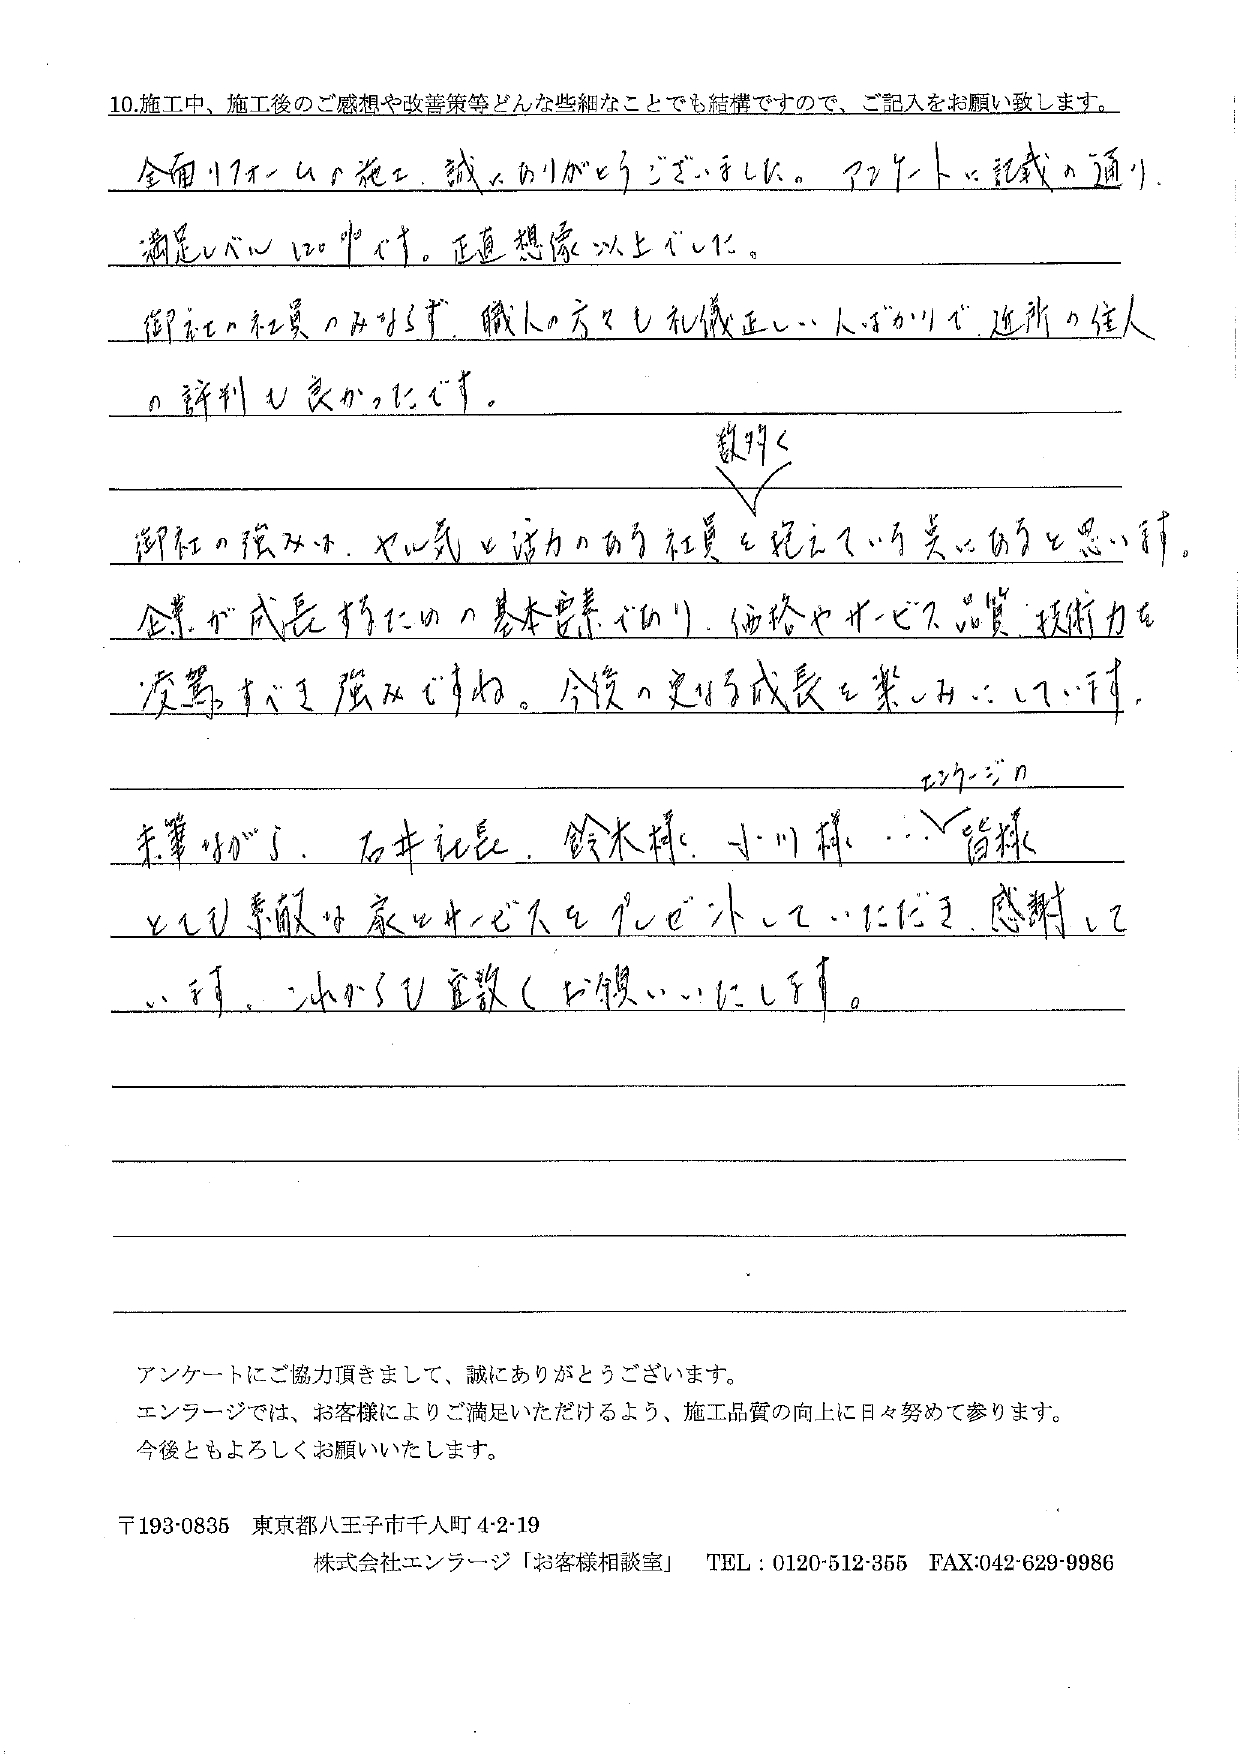 10.施工中、施工後のご感想や改善策等どんな些細なことでも結構ですので、ご記入をお願い致します。
全面リフォームの施工、誠にありがとうございました。アンケートに記載の通り、
満足レベル120%です。正直想像以上でした。
御社の社員のみならず、職人の方々も礼儀正しい人ばかりで、近所の住人
の評判も良かったです。
数多く
御社の強みは、やる気と活力のある社員を抱えている点にあると思います。
企業が成長するための基本要素であり、価格やサービス品質、技術力を
凌駕すべき強みですね。今後の更なる成長を楽しみにしています。
エンラージの
末筆ながら、石井社長、鈴木様、小川様…皆様
とても素敵な家とサービスをプレゼントしていただき、感謝して
います。これからも宜敷くお願いいたします。
アンケートにご協力頂きまして、誠にありがとうございます。
エンラージでは、お客様によりご満足いただけるよう、施工品質の向上に日々努めて参ります。
今後ともよろしくお願いいたします。
〒193-0835 東京都八王子市千人町 4-2-19
株式会社エンラージ「お客様相談室」 TEL：0120-512-355 FAX:042-629-9986